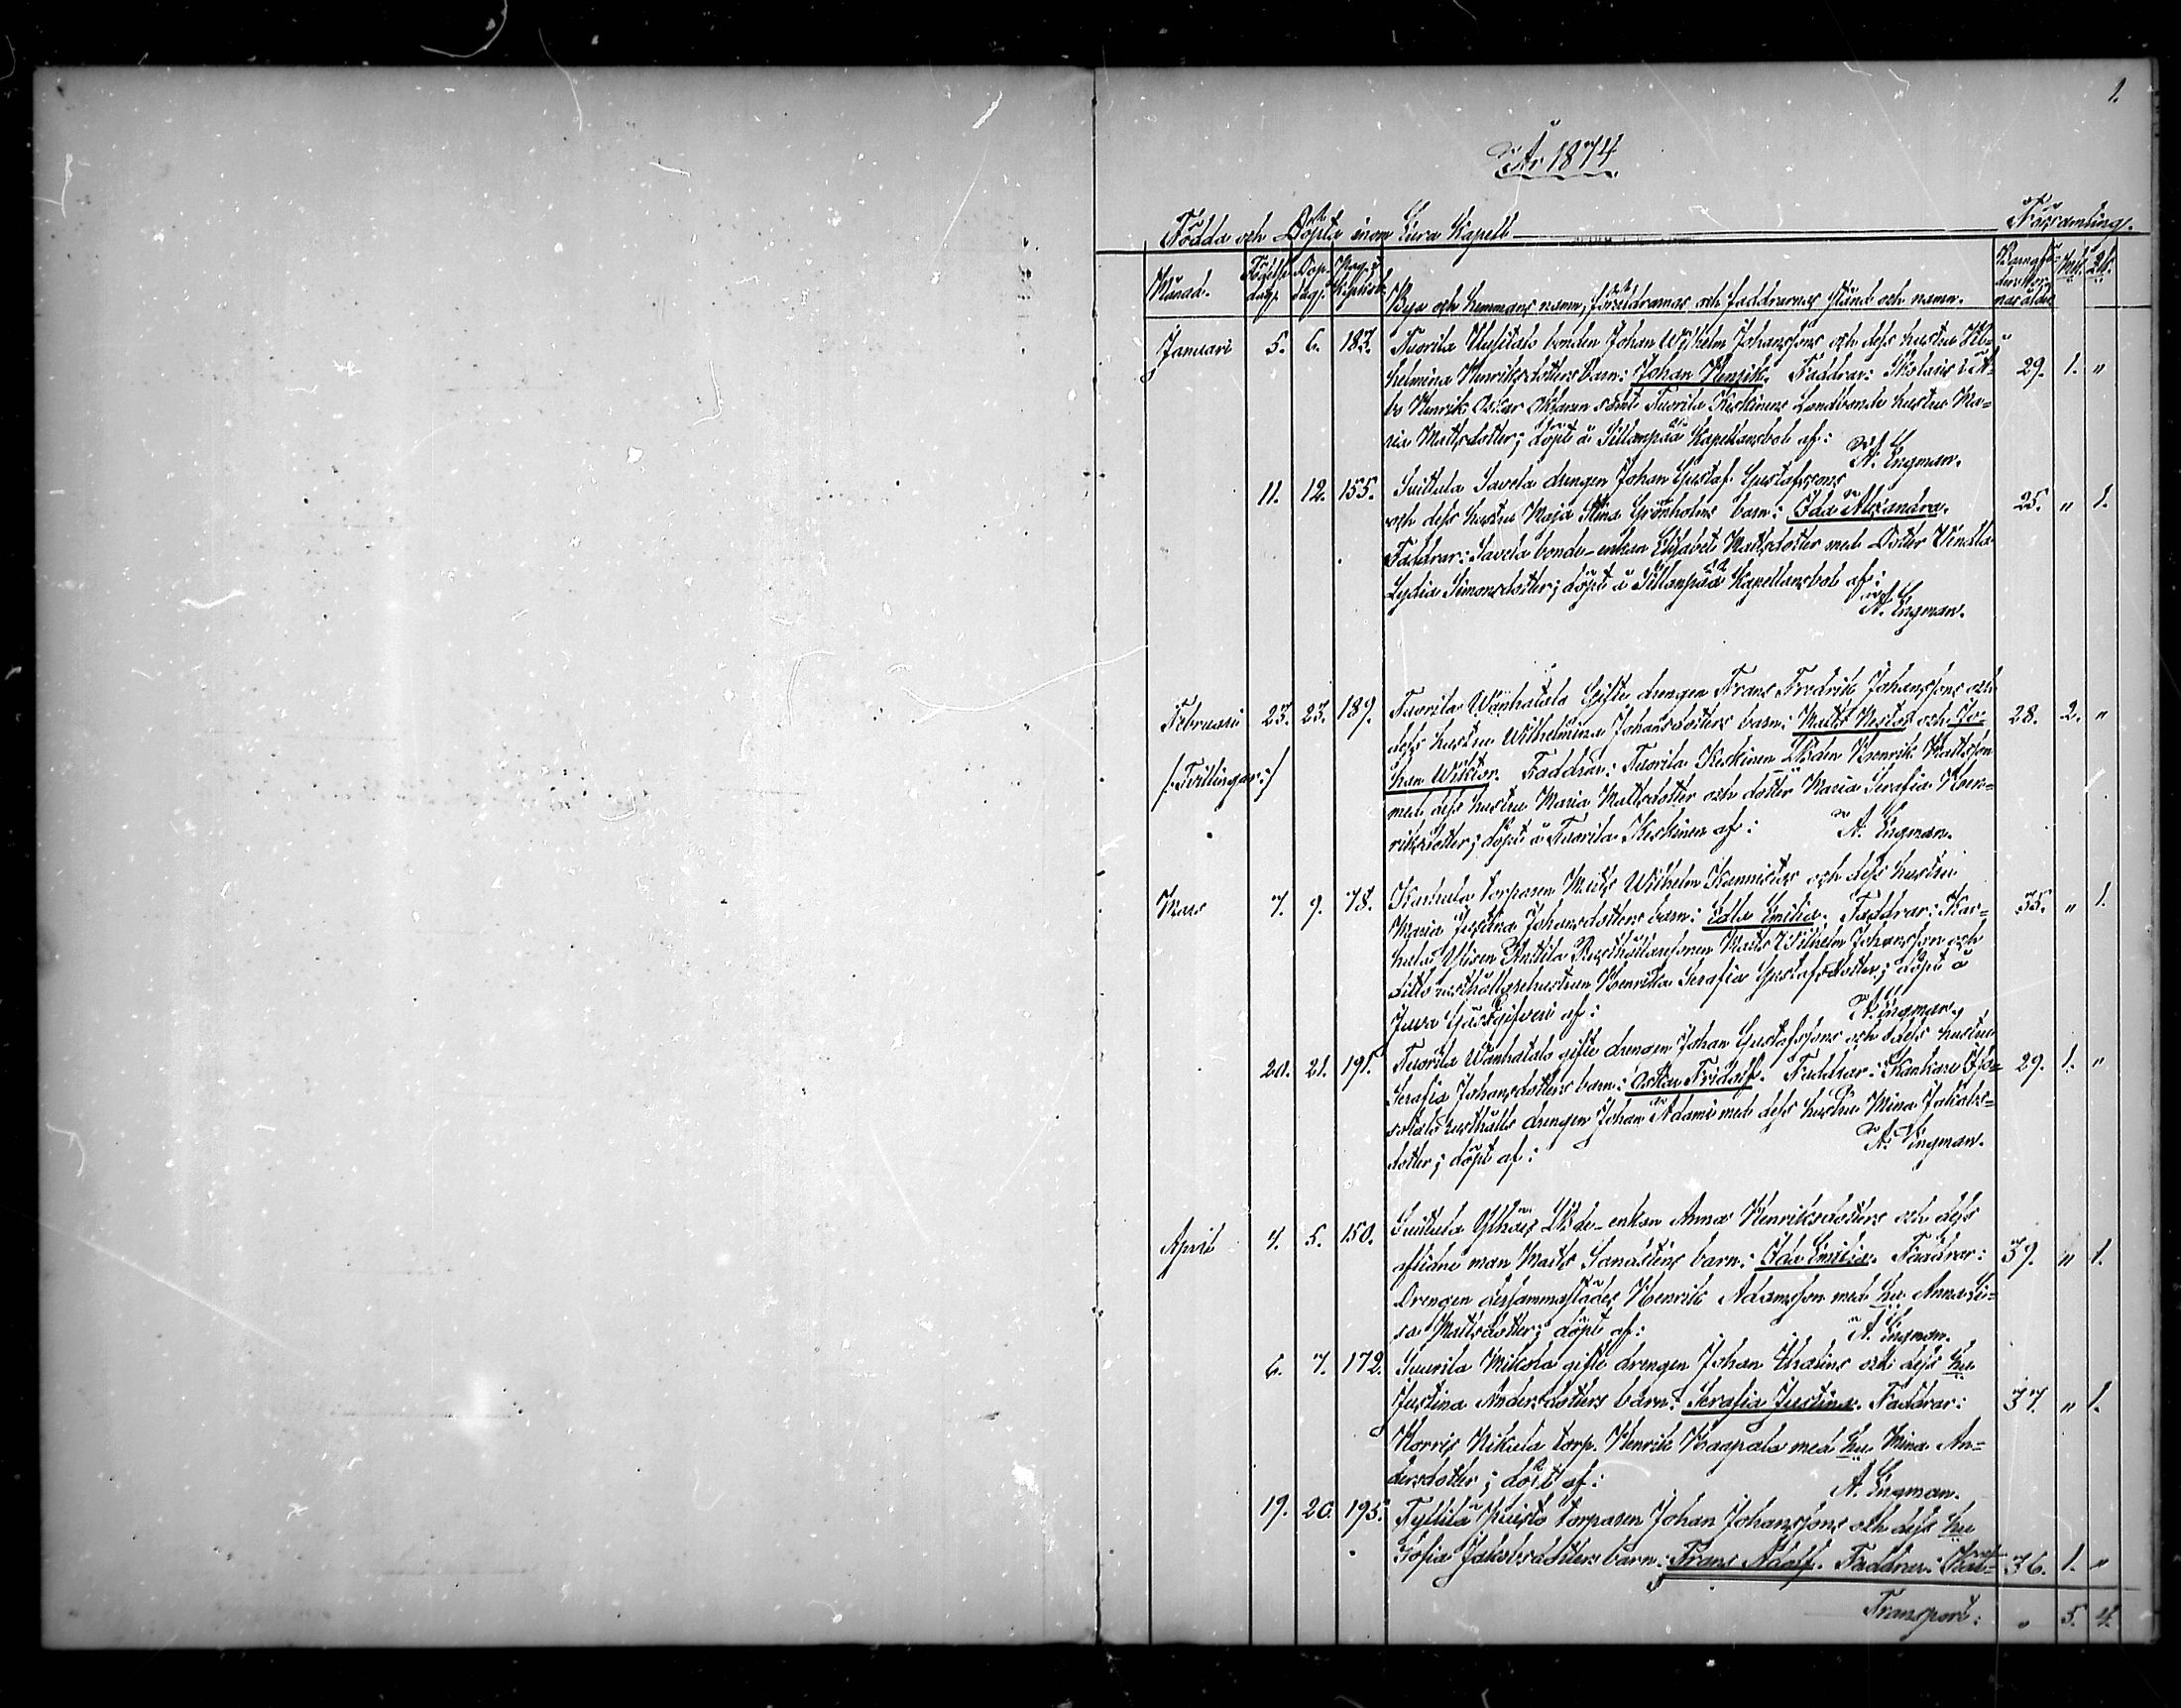 1.
År 1874
Födda och Döpta inom Eura Kapell Församling.
Månad. Födelse dag. Dop. dag. Pag. i Kyrkob. Bya och Hemmans namn, föräldrarnas och faddrarnas stånd och namn. Barnaföderskornas ålder Mk. Qk.
Januari 5. 6. 183. Tuorila Uusitalo bonden Johan Wilhelm Johanssons och dess hustru Vil=
helmina Henriksdotters barn: Johan Henrik. Faddrar: 29. 1. "
bo Henrik Oskar samt Tuorila Keskinens Landbonde hustru Ma=
ria Mattsdotter; döpt å Sillanpää Kapellansbol af:
A. Engman.
11. 12. 155. Suitula Savela drengen Johan Gustaf Gustafssons
och dess hustru Maja Stina Grönholms barn: Ida Alexandra. 25. " 1.
Faddrar: Savela bonde-enkan Elisabet Mattsdotter med Dotter
Lydia Simonsdotter; döpt å Sillanpää Kapellansbol af:
A. Engman.
Februari 23. 23. 189. Tuorila Wanhatalo Gifte drengen Frans Fredrik Johanssons och
dess hustru Wilhelmina Johansdotters barn: Matts Nestor och Jo= 28. 2. "
/: Tvillingar :/ han Wiktor. Faddrar: Tuorila Keskinen Henrik Mattsson
med dess hustru Maria Mattsdotter och dotter Maria Serafia Hen=
riksdotter; döpt å Tuorila Keskinen af: A. Engman.
Mars 7. 9. 78. Kauhala torparen Matts Wilhelm och dess hustru
Maria Justina Johansdotters barn: Edla Emilia. Faddrar: Kau= 35. " 1.
hala Anttila Rusthållaresonen Matts Wilhelm Johansson och
ditto rusthållarehustrun Henrika Serafia Gustafsdotter; döpt å
Gästgifveri af: A. Engman.
20. 21. 191. Tuorila Wanhatalo gifte drengen Johan Gustafssons och dess hustru
Serafia Johansdotters barn: Oskar Fridolf. Faddrar: 29. 1. "
rusthålls drengen Johan Adami med dess hustru Mina Jakobs=
dotter; döpt af: A. Engman.
April 4. 5. 150. Suitula enkan Anna Henriksdotters och dess
aflidne man Matts barn: Ida Emilia. Faddrar: 39. " 1.
Drengen dersammastädes Henrik Adamsson med hu Anna Li=
sa Mattsdotter; döpt af: A. Engman.
6. 7. 172. Suurila Mikola gifte drengen Johan och dess hu
Justina Andersdotters barn: Serafia Justina. Faddrar: 37. " 1.
torp. Henrik Haapala med hu Mina An=
dersdotter; döpt af: A. Engman.
19. 20. 195. torparen Johan Johanssons och dess hu
Sofia Jakobsdotters barn: Frans Adolf. Faddrar: 36. 1. "
Transport: " 5. 4.